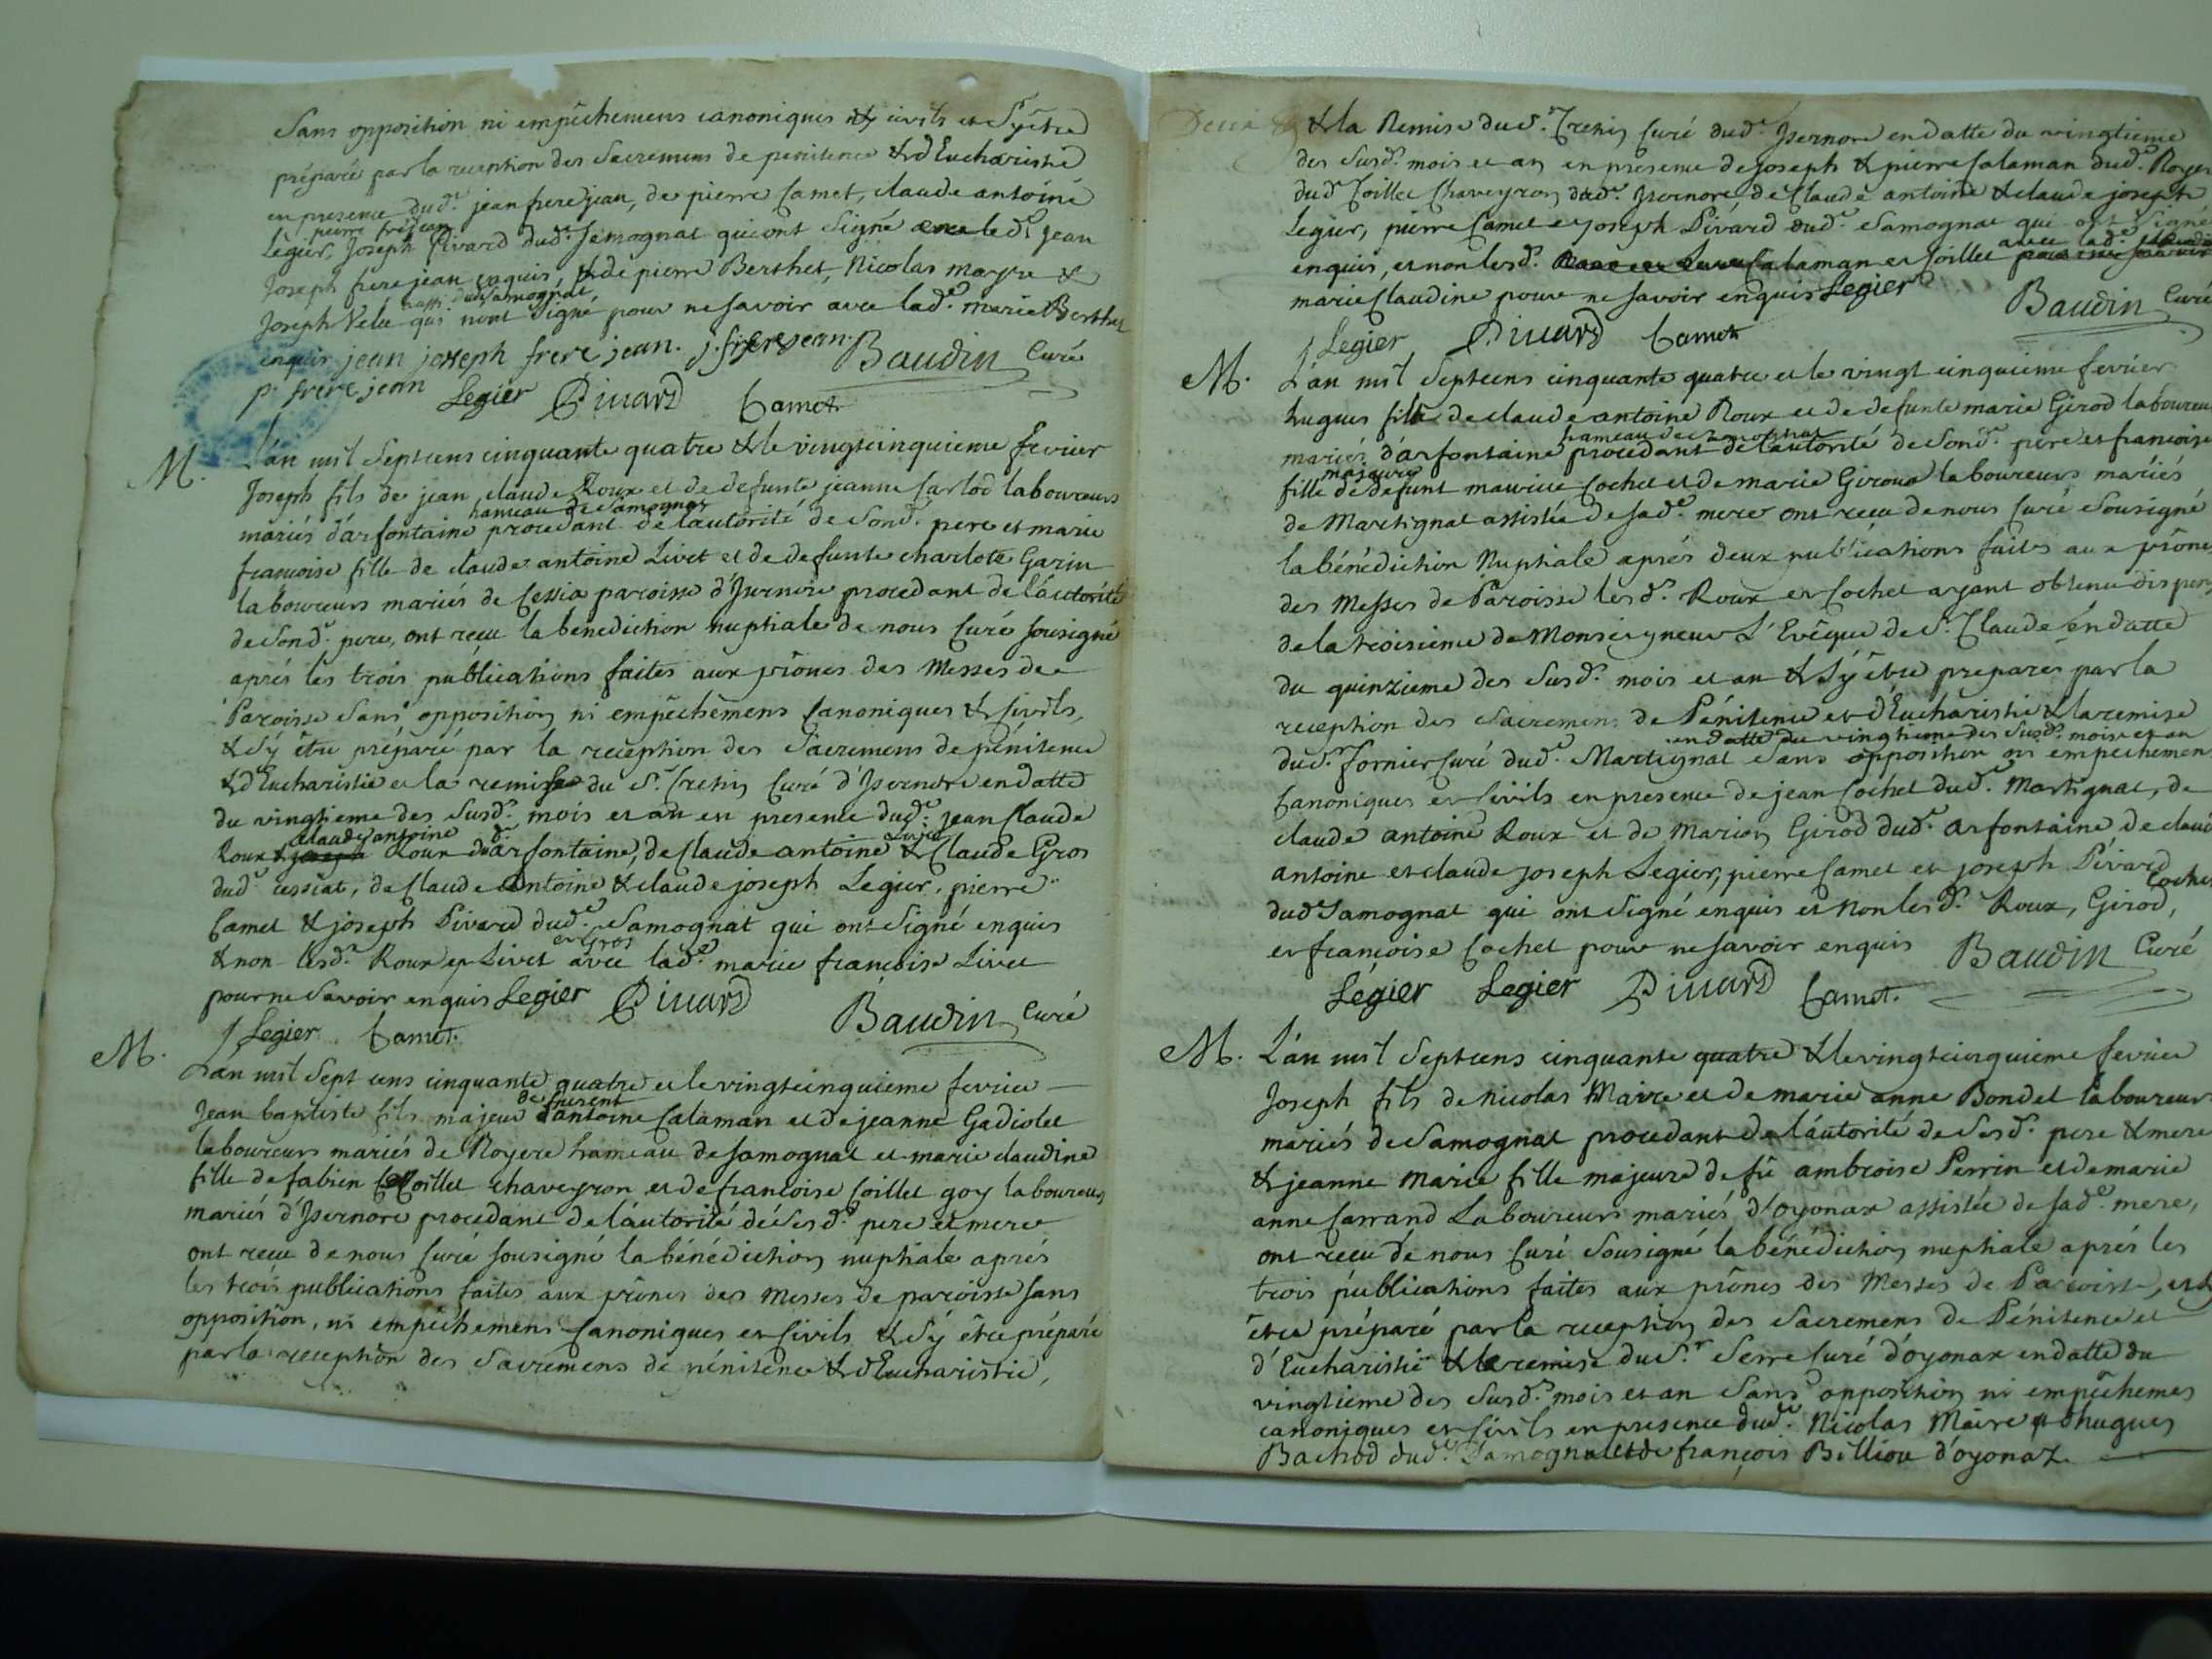 Sans opposition ni empêchemens canoniques et civils et s'y être
préparé par la reception des Sacremens de penitence & d'Eucharistie
en presence dud. jean frere jean, de pierre Camet, claude antoine
pierre frerejean
Legier, Joseph Pivard dud. Samognat qui ont signé avec led. jean
Joseph frere jean enquis, & de pierre Berthet, Nicolas mayre &
dud. Samognat
Joseph Velu qui n'ont signé pour ne savoir avec lade. marie Berthet
enquis jean joseph frere jean. j. frerejean. Baudin Curé
p. frere jean Legier Pivard Camet
M. L'an mil Septcens cinquante quatre & le vingtcinquieme fevrier
Joseph fils de jean claude Roux et de defunte jeanne Carlod laboureurs
hameau de Samognat
mariés d'arfontaine procedant de l'autorité de Sond. pere et marie
francoise fille de claude antoine Livet et de defunte charlote Garin
laboureurs mariés de Cessia paroisse d'Isernore procedant de l'autorité
de Sond. pere, ont reçu la benediction nuptiale de nous Curé sousigné
aprés les trois publications faites aux prônes des Messes de
Paroisse sans opposition ni empêchemens Canoniques & Civils,
& s'y être préparé par la reception des Sacremens de pénitence
& d'Eucharistie et la remise du Sr. Cretin Curé d'Isernore en datte
du vingtieme des Susd. mois et an en presence dud. jean Claude
claude antoine
Roux & joseph Roux d'arfontaine, de Claude antoine Livet & Claude Gros
dud. cessiat, de Claude Antoine & claude joseph Legier, pierre
Camet & joseph Pivard dude. Samognat qui ont signé enquis
et Gros
& non lesd. Roux et Livet avec lade. marie francoise Livet
pour ne savoir enquis Legier Pivard Baudin Curé
J Legier Camet.
M. L'an mil Sept cens cinquante quatre et le vingtcinquieme fevrier
de present
Jean baptiste fils majeur d'antoine Calaman et de jeanne Gadiolet
laboureurs mariés de Royere hameau de Samognat et marie claudine
fille de fabien Coillet chaveyron et de francoise Coillet goy laboureurs
mariés d'Isernore procedant de l'autorité de Sesd. pere et mere
ont reçu de nous Curé sousigné la bénédiction nuptiale aprés
les trois publications faites aux prônes des Messes de paroisse sans
opposition, ni empêchemens Canoniques et Civils & s'y être préparé
par la reception des Sacremens de pénitence & d'Eucharistie,
& la Remise du Sr. Cretin Curé dud. Isernore en datte du vingtieme
des Susd. mois et an en presence de joseph & pierre Calaman dud. Royere
dud. Coillet Chaveyron dud. Isernore, de Claude antoine & claude joseph
Legier, pierre Camet et joseph Pivard dud. Samognat qui ont signé
avec lade.
enquis, et non lesd. Calaman et Coillet pour ne savoir
marie Claudine pour ne savoir enquis Legier
J Legier Pivard Camet Baudin Curé
M. L'an mil Septcens cinquante quatre et le vingt cinquieme fevrier
hugues fils de claude antoine Roux et de defunte marie Girod laboureurs
hameau de Samognat
mariés d'arfontaine procedant de l'autorité de Sond. pere et francoise
majeure
fille de defunt maurice Cochet et de marie Giroux laboureurs mariés
de Martignat assistée de sade. mere ont reçu de nous Curé Sousigné
la bénédiction Nuptiale aprés deux publications faites aux prônes
des Messes de Paroisse lesd. Roux et Cochet ayant obtenu dispense
de la troisieme de Monseigneur L'Evêque de St. Claude en datte
du quinzieme des Susd. mois et an & s'y être preparés par la
reception des Sacremens de Pénitence et d'Eucharistie & la remise
en datte du vingtieme des Susd. mois et an
dud. Sr. fornier Curé dud. Martignat sans opposition ni empechemens
Canoniques et Civils en presence de jean Cochet dud. Martignat, de
claude antoine Roux et de Marion Girod dud. arfontaine de claude
antoine et claude joseph Legier, pierre Camet et joseph Pivard
Cochet
dud. Samognat qui ont signé enquis et non lesd. Roux, Girod,
et françoise Cochet pour ne savoir enquis Baudin Curé
Légier Legier Pivard Camet.
M. L'an mil Septcens cinquante quatre & le vingtcinquieme fevrier
Joseph fils de Nicolas Maire et de marie anne Bondet laboureurs
mariés de Samognat procedant de l'autorité de Sesd. pere & mere
& jeanne Marie fille majeure de fû ambroise Perrin et de marie
anne Carrand Laboureurs mariés d'oyonax assistée de sade. mere,
ont reçu de nous Curé Sousigné la bénédiction nuptiale aprés les
trois publications faites aux prônes des Messes de Paroisse, et s'y
être préparé par la reception des Sacremens de Pénitence et
d'Eucharistie & la remise du Sr. Serre Curé d'oyonax en datte du
vingtieme des Susd. mois et an Sans opposition ni empêchemens
canoniques et Civils en presence dud. Nicolas Maire & d'hugues
Bachod dud. Samognat et de françois Billiou d'oyonaz.